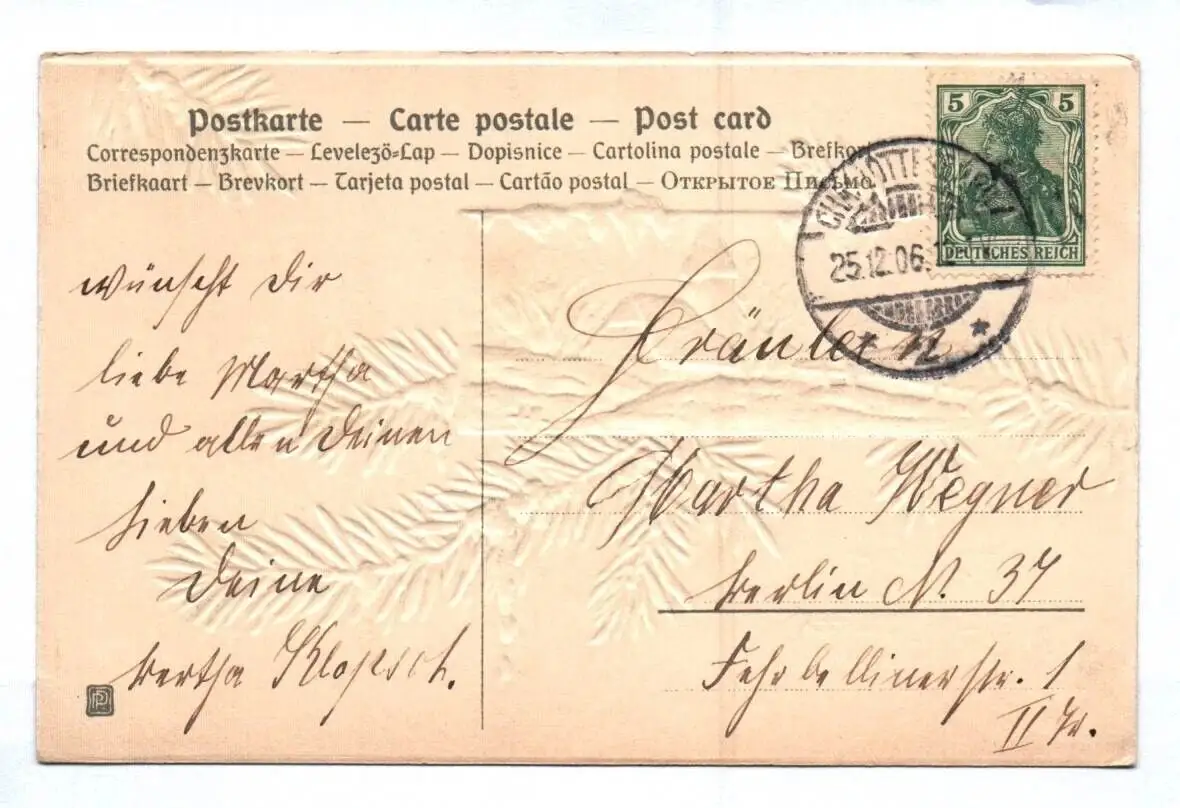 Postkarte — Carte postale — Post card
Correspondenzkarte — Levelezö-Lap — Dopisnice — Cartolina postale — Brefkort
Briefkaart — Brevkort — Tarjeta postal — Cartão postal — Открытое Письмо
5 5
DEUTSCHES REICH
CHARLOTTENBURG
25.12.06.
* n *
wünscht Dir
liebe Martha
und allen Deinen
Lieben
Deine
Bertha Klopsch.
Fräulein
Martha Wegner
Berlin N. 37
Fehrbellinerstr. 1
II Tr.
PP